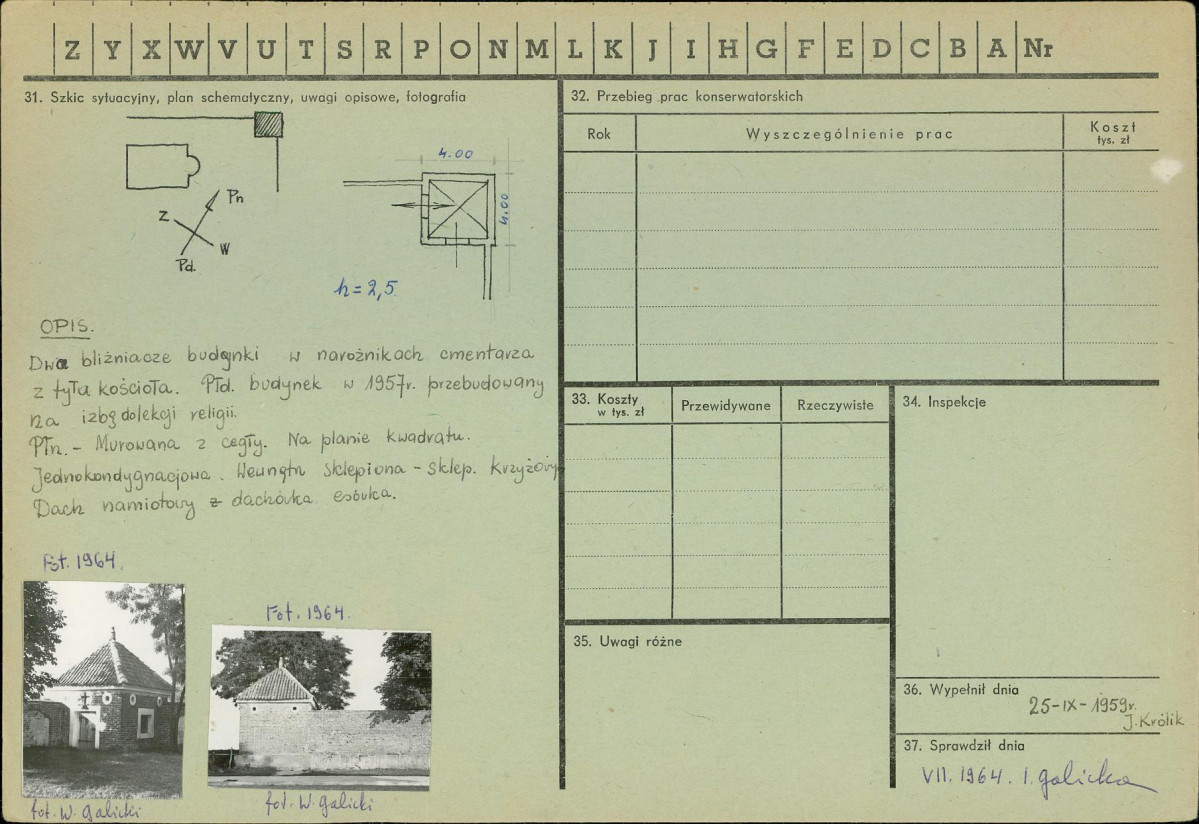 Z Y X W V U T S R P O N M L K J I H G F E D C B A Nr
31. Szkic sytuacyjny, plan schematyczny, uwagi opisowe, fotografia
Pn
Z
W
Pd.
4.00
4.00
h = 2,5
OPIS.
Dwa bliźniacze budynki w narożnikach cmentarza
z tyła kościoła. Płd. budynek w 1957r. przebudowany
na izbę do lekcji religii.
Płn. - Murowana z cegły. Na planie kwadratu.
Jednokondygnacjowa. Wewnątrz sklepiona - sklep. krzyżowy
Dach namiotowy z dachówka esówka.
Fot. 1964.
Fot. 1964.
fot. W. Galicki
fot. W. Galicki
32. Przebieg prac konserwatorskich
Rok Wyszczególnienie prac Koszt
tys. zł
33. Koszty
w tys. zł
Przewidywane Rzeczywiste
34. Inspekcje
35. Uwagi różne
36. Wypełnił dnia
25-IX-1959r.
J. Królik
37. Sprawdził dnia
VII. 1964. I. Galicka